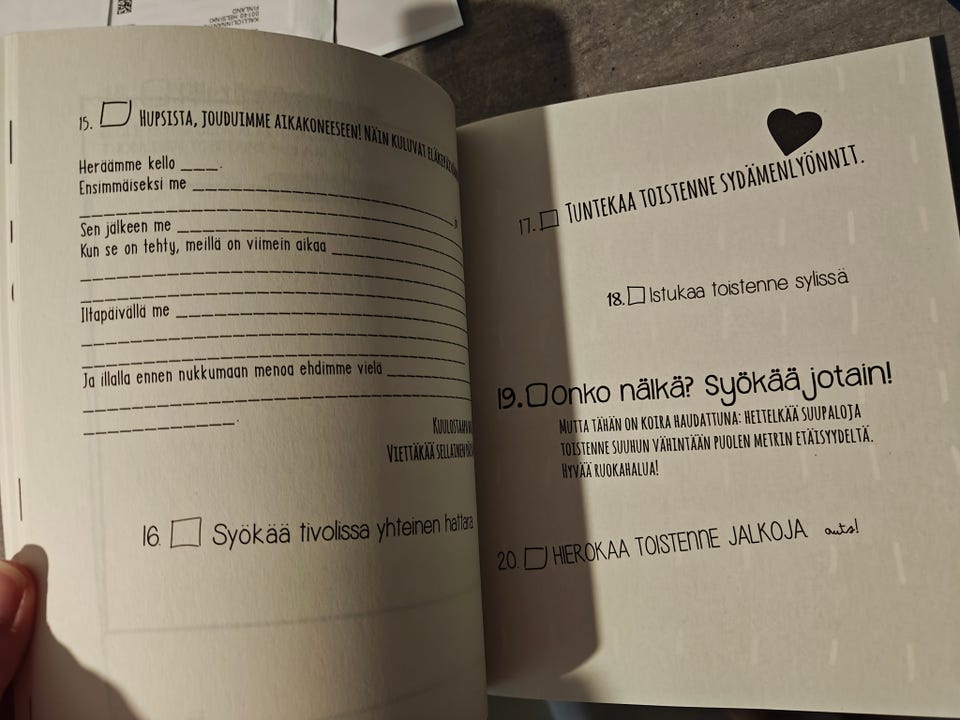 FINLAND
00140 HELSINKI
15. HUPSISTA, JOUDUIMME AIKAKONEESEEN! NÄIN KULUVAT
Heräämme kello ____.
Ensimmäiseksi me ____
____.
Sen jälkeen me ____
Kun se on tehty, meillä on viimein aikaa ____
____
____
Iltapäivällä me ____
____
____
Ja illalla ennen nukkumaan menoa ehdimme vielä ____
____
____.
VIETTÄKÄÄ SELLAINEN
16. Syökää tivolissa yhteinen hattara
17. TUNTEKAA TOISTENNE SYDÄMENLYÖNNIT.
18. Istukaa toistenne sylissä
19. onko nälkä? syökää jotain!
MUTTA TÄHÄN ON KOIRA HAUDATTUNA: HEITELKÄÄ SUUPALOJA
TOISTENNE SUUHUN VÄHINTÄÄN PUOLEN METRIN ETÄISYYDELTÄ.
HYVÄÄ RUOKAHALUA!
20. HIEROKAA TOISTENNE JALKOJA auts!